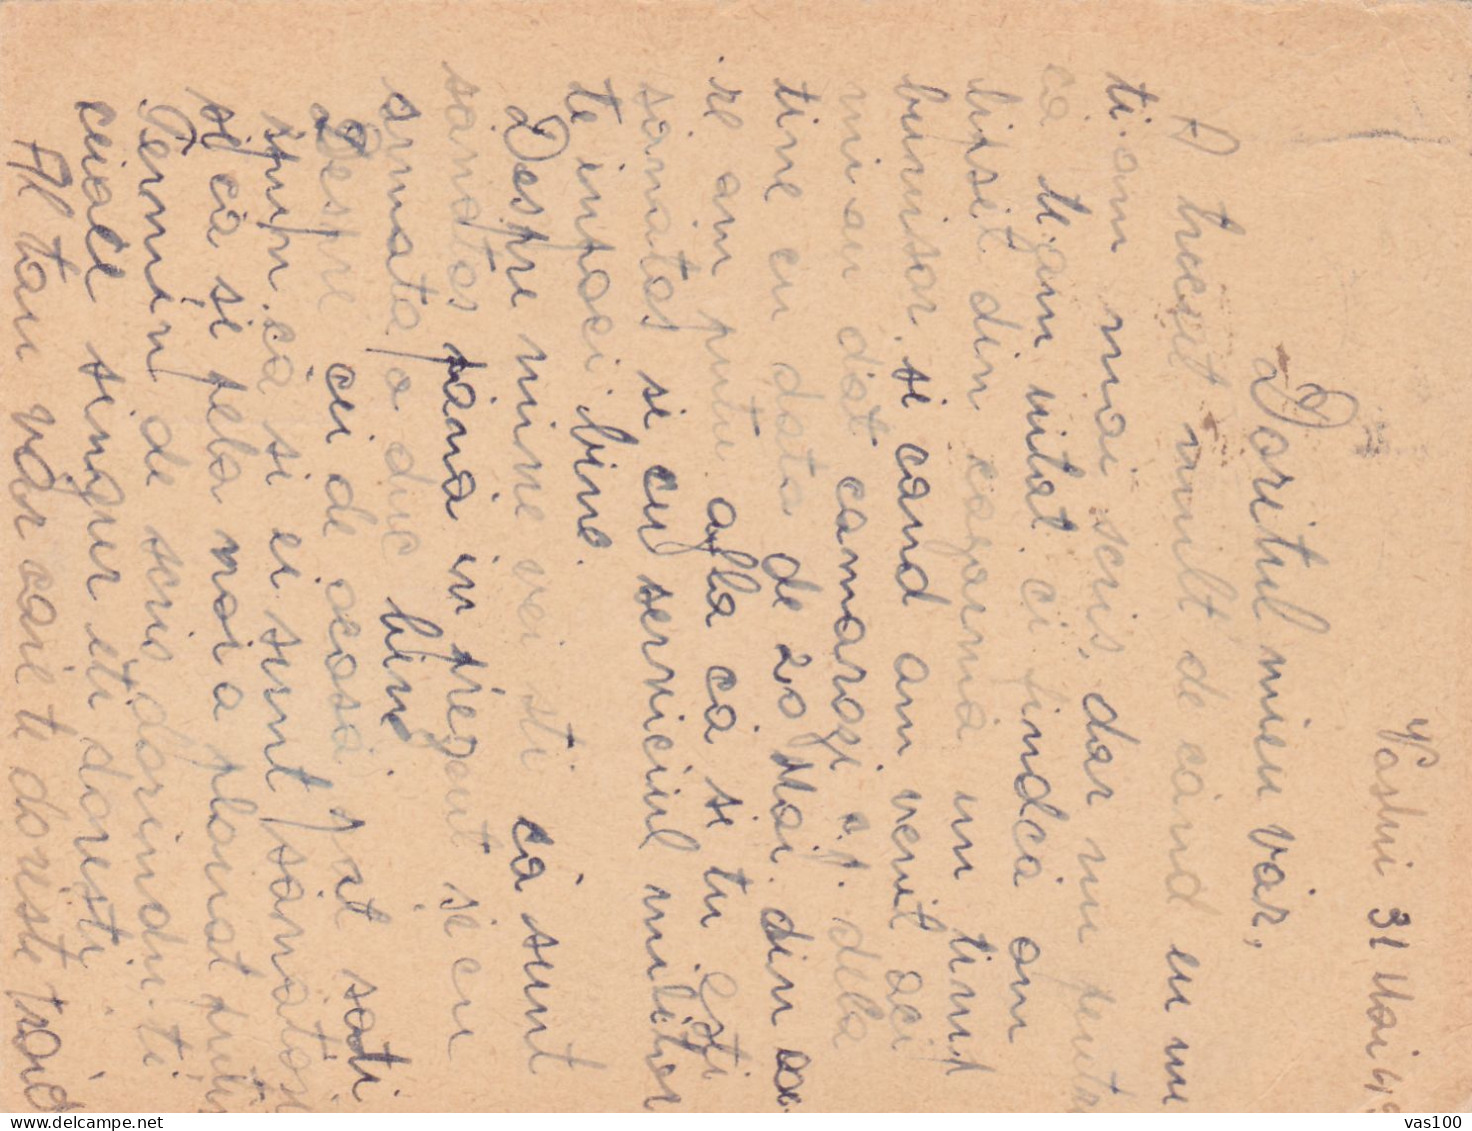 Vaslui 31 Mai 43
Doritul mieu văr,
A trecut mult de cănd eu nu
ti-am mai scris, dar nu pentru
că team uitat ci findcă am
lipsit din cazarma un timp
bunisor, si cand am venit aci
miau dat camarazi c.p. dela
tine cu data de 20 Mai. din ca
re am putu afla că si tu esti
sanatos si cu serviciul militar
te inpaci bine.
Despre mine vei sti că sunt
sanatos pana in prezent si cu
armata o duc bine
Despre cei de acasă pot sati
spun că si ei sunt sanatosi
si că si pela noi a plouat putin
Termin de scris dorindu-ti
ceiace singur iti doresti
Al tau văr care te doreste
delcampe.net
vas100